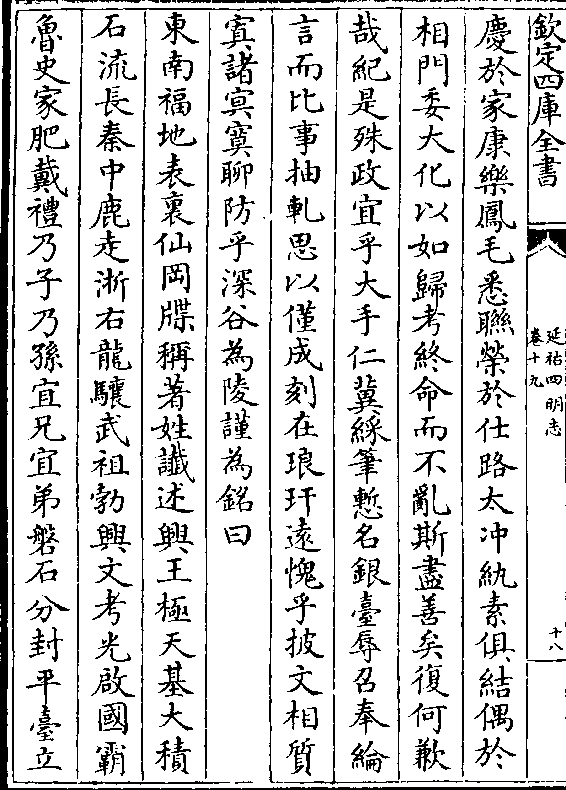 欽定四庫全書
延祐四明志
卷十九
十八
慶於家康樂鳳毛悉聯榮於仕路太冲紈素俱結偶於
相門委大化以如歸考終命而不亂斯盡善矣復何歉
哉紀是殊政宜乎大手仁冀綵筆慙名銀臺辱召奉綸
言而比事抽軋思以僅成刻在琅玕遠愧乎披文相質
寘諸㝠寞聊防乎深谷為陵謹為銘曰
東南福地表裏仙岡牒稱著姓讖述興王極天基大積
石流長秦中鹿走浙右龍驤武祖勃興文考光啟國霸
魯史家肥戴禮乃子乃孫宜兄宜弟磐石分封平臺立